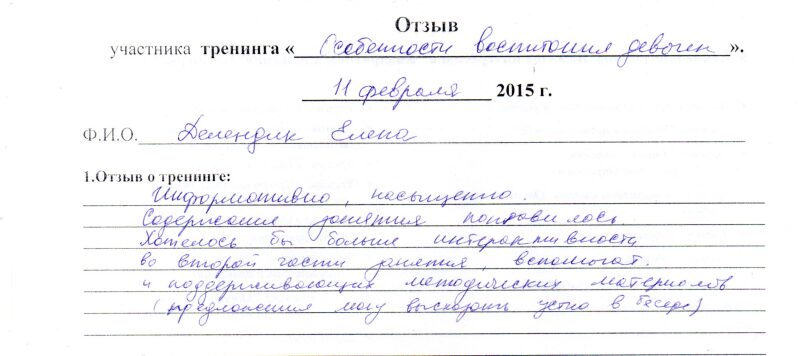 Отзыв
участника тренинга « Особенности воспитания девочек ».
11 февраля 2015 г.
Ф.И.О. Делендик Елена
1.Отзыв о тренинге:
Информативно, насыщенно.
Содержание занятия понравилось
Хотелось бы больше интерактивности
во второй части занятия, вспомогат.
и поддерживающих методических материалов
(предложения могу высказать устно в беседе)